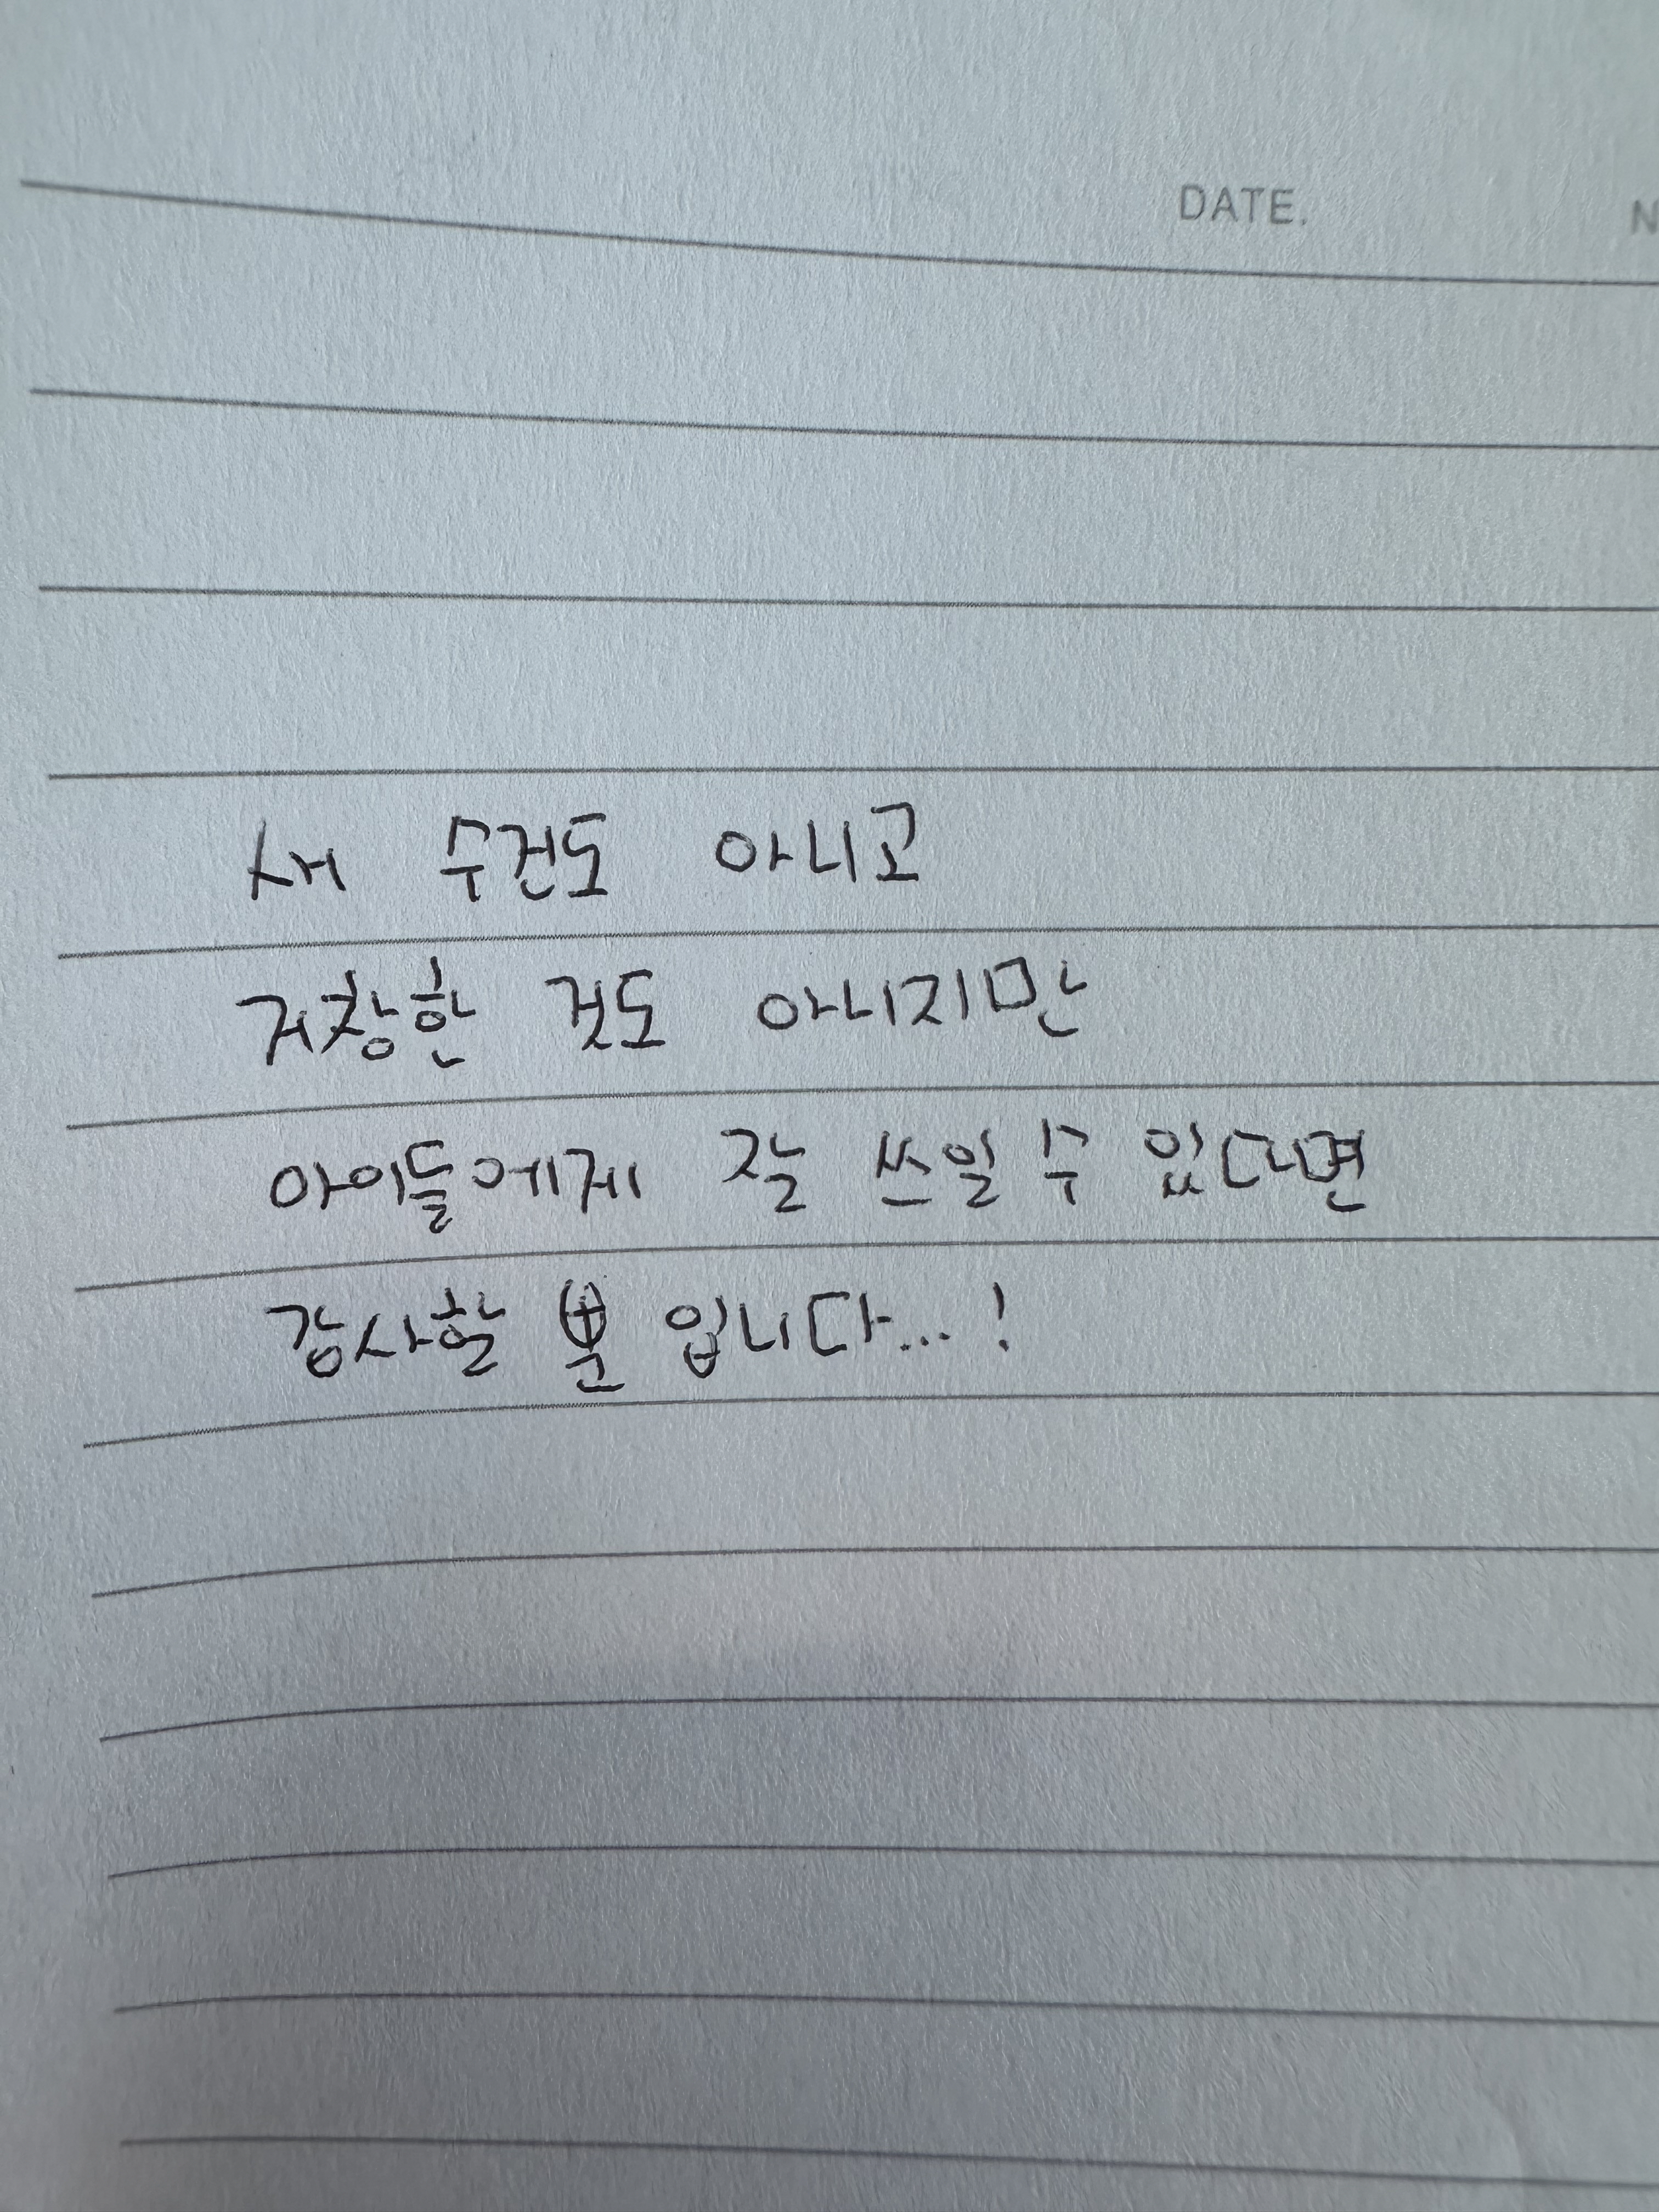 DATE.
새 수건도 아니고
거창한 것도 아니지만
아이들에게 잘 쓰일 수 있다면
감사할 뿐 입니다...!